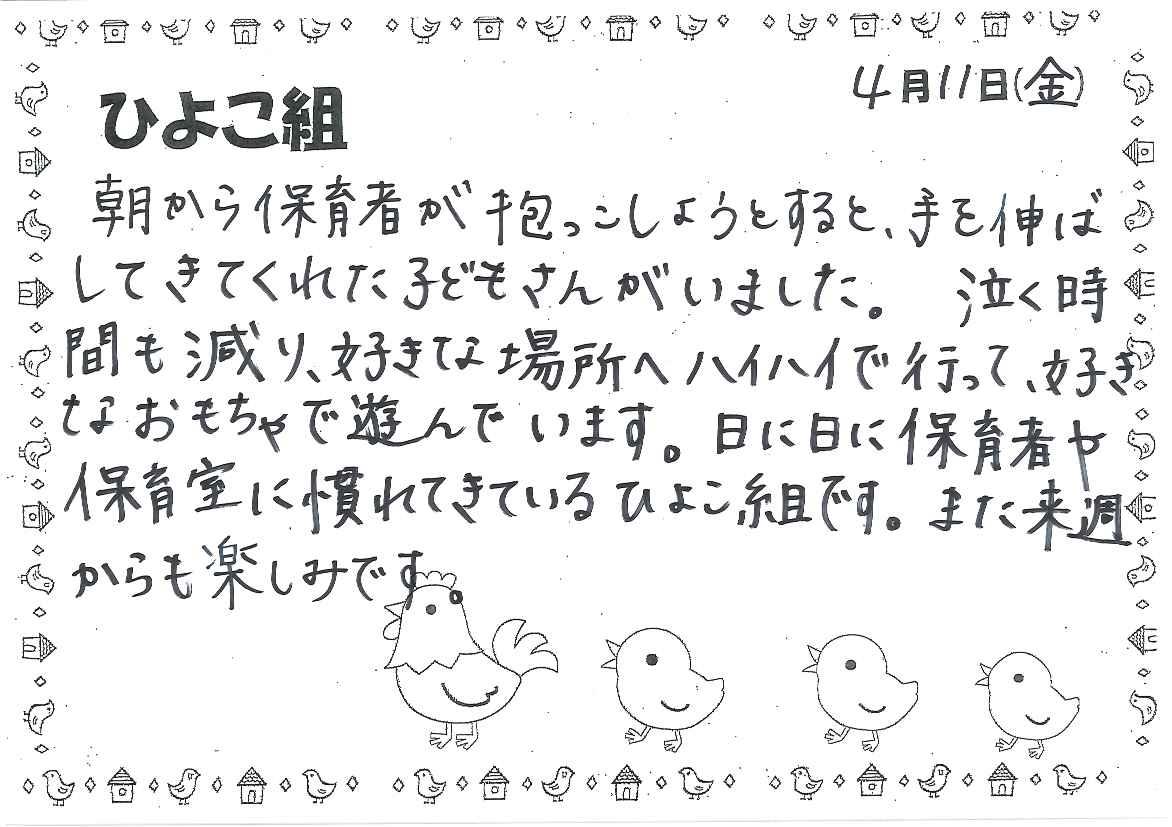 4月11日(金)
ひよこ組
朝から保育者が抱っこしようとすると、手を伸ば
してきてくれた子どもさんがいました。 泣く時
間も減り、好きな場所へハイハイで行って、好き
なおもちゃで遊んでいます。日に日に保育者や
保育室に慣れてきているひよこ組です。また来週
からも楽しみです。